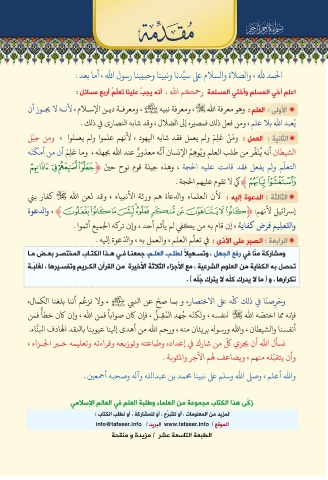 مُقَدِّمَة
الحمد لله، والصلاة والسلام على سيِّدنا ونبينا وحبيبنا رسول الله، أما بعد:
اعلم أخي المسلم وأختي المسلمة رحمكم الله، أنه يجبُ علينا تعلّم أربع مسائل:
الأولى: العلم: وهو معرفة الله ﷻ، ومعرفة نبيه ﷺ، ومعرفـة دين الإسـلام، لأنـه لا يجوز أن
يُعبَد الله بلا علم، ومن فعل ذلك فمصيره إلى الضلال، وقد شابه النصارى في ذلك.
الثانية: العمل: ومَنْ عَلِمَ ولم يعمل فقد شابه اليهود، لأنهم علموا ولم يعملوا، ومن حِيَل
الشيطان أنه يُنفِّر من طلب العلم ويُوهِمُ الإنسان أنَّه معذورٌ عند الله بجهله، وما عَلِمَ أن من أمكنَه
التعلّم ولم يفعل فقد قامت عليه الحجة، وهذه حيلة قوم نوح حين ﴿جَعَلُوٓاْ أَصَٰبِعَهُمۡ فِيٓ ءَاذَانِهِمۡ
وَٱسۡتَغۡشَوۡاْ ثِيَابَهُمۡ﴾ كي لا تقوم عليهم الحجة.
الثالثة: الدعوة إليه: لأن العلماء والدعاة هم ورثة الأنبياء، وقد لعن الله ﷻ كفار بني
إسرائيل لأنهم: ﴿كَانُواْ لَا يَتَنَاهَوۡنَ عَن مُّنكَرٖ فَعَلُوهُۚ لَبِئۡسَ مَا كَانُواْ يَفۡعَلُونَ﴾، والدعوة
والتعليم فرض كفاية، إن قام به من يكفي لم يأثم أحد، وإن تركه الجميع أثموا.
الرابعة: الصبر على الأذى: في تعلّم العلم، والعمل به، والدعوة إليه.
ومشاركة منّا في رفع الجهل، وتسهيلاً لطلب العلم، جمعنا في هذا الكتاب المختصر بعض ما
تحصل به الكفاية من العلوم الشرعية، مع الأجزاء الثلاثة الأخيرة من القرآن الكريم وتفسيرها، لغلبة
تكرارها، و(ما لا يدرك كلّه لا يترك جلّه).
وحَرصنا في ذلك كلّه على الاختصار، و بما صحّ عن النبي ﷺ، ولا نزعُم أننا بلغنا الكمال،
فإنه مما اختصّه الله ﷻ لنفسه، ولكنّه جُهد المُقلّ، فإن كان صواباً فمن الله، وإن كان خطأ فمن
أنفسنا والشيطان، والله ورسوله بريئان منه، ورحم الله من أهدى إلينا عيوبنا بالنقد الهادف البنّاء.
نسأل الله أن يجزي كلَّ من شارك في إعداده وطباعته وتوزيعه وقراءته وتعليمه خير الجزاء،
وأن يتقبّله منهم، ويضاعف لهم الأجر والمثوبة.
والله أعلم، وصلى الله وسلم على نبينا محمد بن عبدالله وآله وصحبه أجمعين.
زكّى هذا الكتاب مجموعة من العلماء وطلبة العلم في العالم الإسلامي
لمزيد من المعلومات، أو للتبرّع، أو للمشاركة، أو لطلب الكتاب:
الموقع / www.tafseer.info البريد / info@tafseer.info
الطبعة التاسعة عشر / مزيدة و منقحة